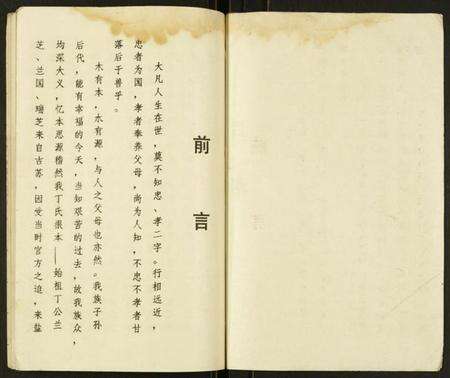 前言
大凡人生在世，莫不知忠、孝二字。行相远近，
忠者为国，孝者奉养父母，尚为人知，不忠不孝者甘
落后于兽乎。
木有本，水有源，与人之父母也亦然。我族子孙
后代，能有幸福的今天，当知艰苦的过去，故我族众，
均深大义，忆本思源稽然我丁氏根本——始祖丁公兰
芝、兰国、瑞芝来自古苏，因受当时官方之迫，来盐